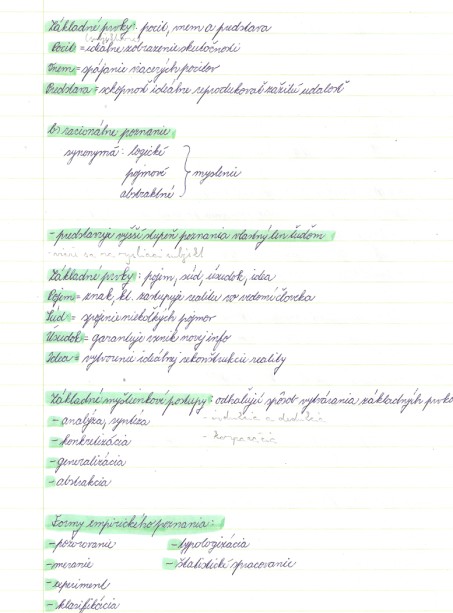 Základné prvky: pocit, vnem a predstava
Pocit = ideálne zobrazenie skutočnosti
Vnem = spájanie viacerých pocitov
Predstava = schopnosť ideálne reprodukovať zažitú udalosť
b) racionálne poznanie
synonymá: logické
pojmové } myslenie
abstraktné
- predstavuje vyšší stupeň poznania vlastný len ľuďom
Základné prvky: pojem, súd, úsudok, idea
Pojem = znak, kt. zastupuje realitu vo vedomí človeka
Súd = spojenie niekoľkých pojmov
Úsudok = garantuje vznik novej info
Idea = vytvorenie ideálnej rekonštrukcie reality
Základné myšlienkové postupy: odhaľujú spôsob vytvárania základných prvkov
- analýza, syntéza - indukcia a dedukcia
- konkretizácia
- generalizácia
- abstrakcia
Formy empirického poznania:
- pozorovanie - typologizácia
- meranie - štatistické spracovanie
- experiment
- klasifikácia